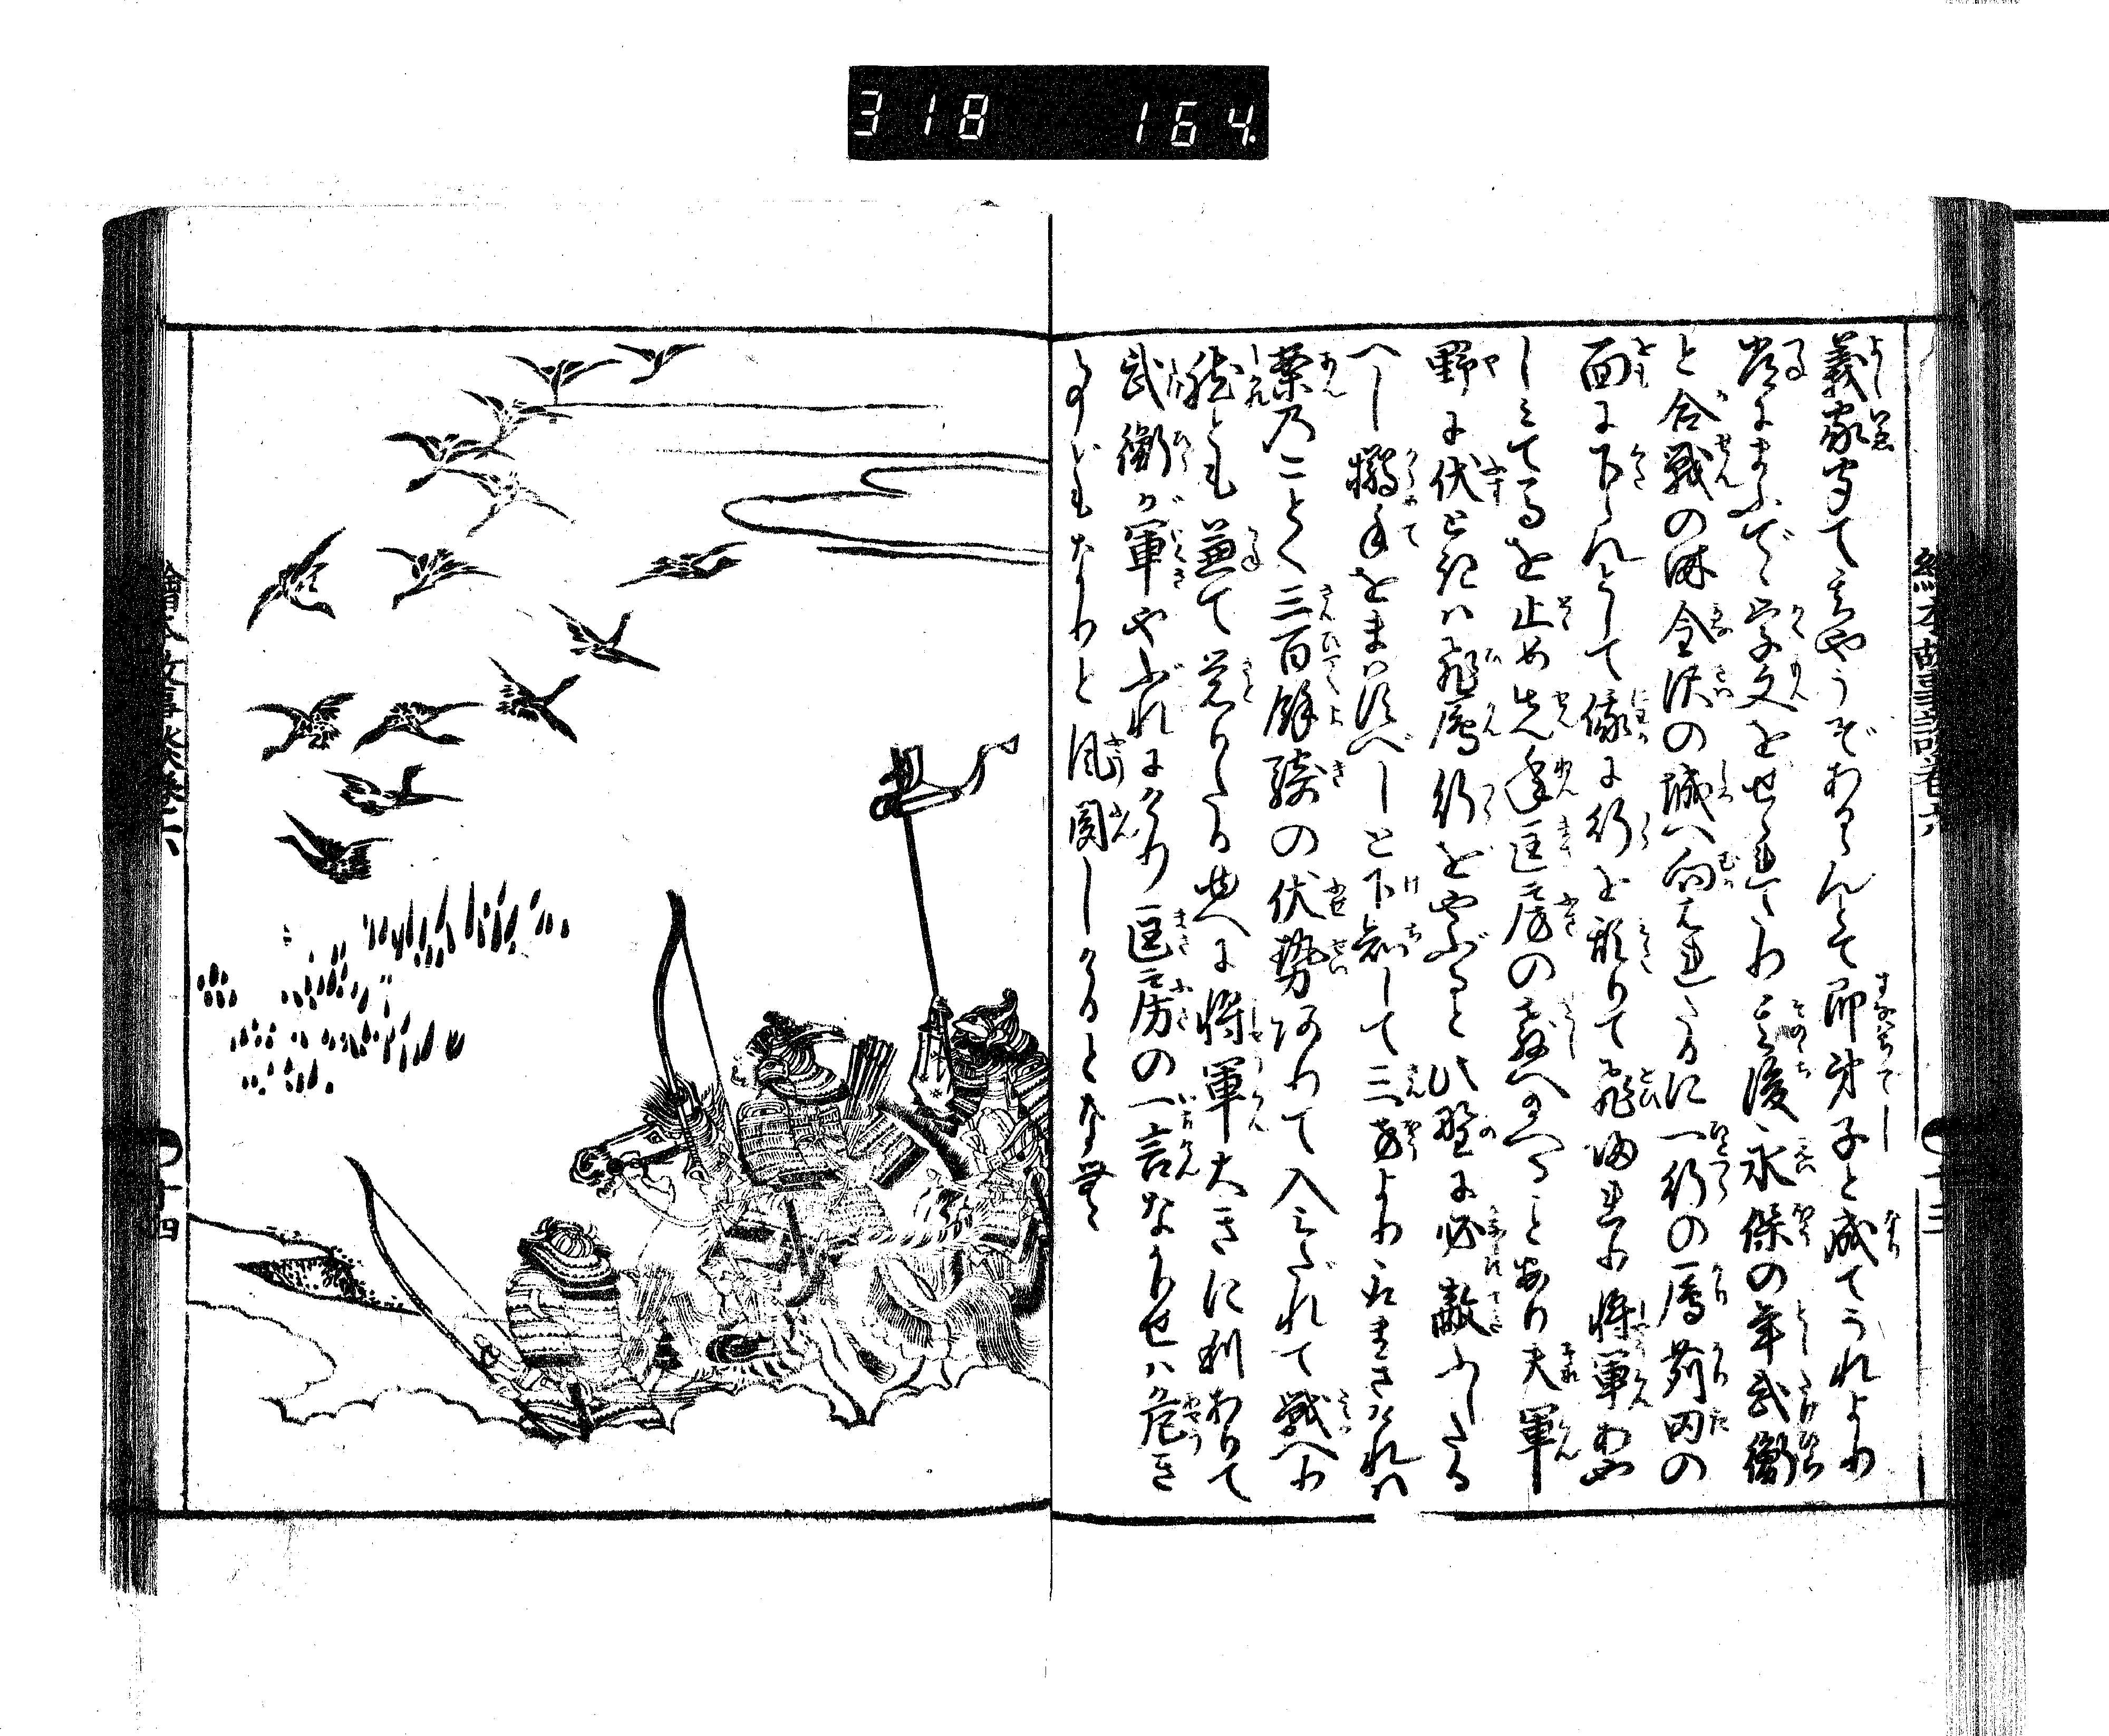 318 164
絵本故事談巻六 十三
義家聞てさやうぞあるらんとて即弟子と成てそれより
常にまふで学文をせられたり其後永保の年武衡
と合戦の時金沢の城へ向はれたるに一行の鴈苅田の
面に下らんとして俄に行を乱りて飛帰ければ将軍あや
しみてるを止め先年匡房の教へのへること あり夫軍
野に伏とき は飛鴈行をやぶると此野に必敵ふしたる
へし搦手をまはすべしと下知して三方より まきければ
案のことく三百余騎の伏勢ありて入みだれて戦へ
然とも兼て覚りたる 故に将軍大きに利ありて
武衡が軍やぶれにけり匡房の一言なかりせは危き
ことどもなりと風聞しけるとなん
絵本故事談巻六 十四